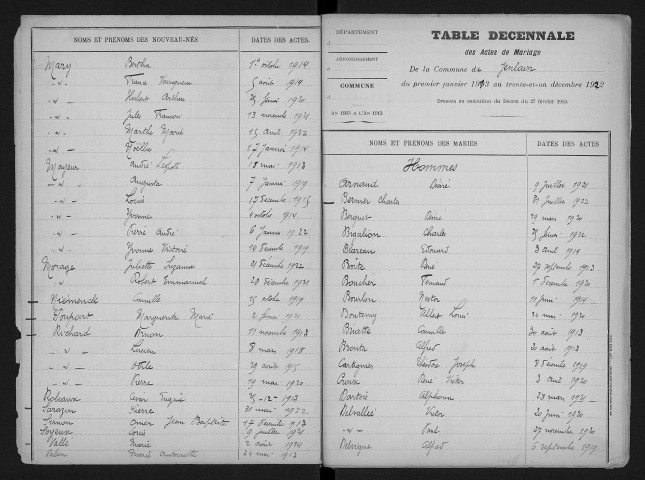 NOMS ET PRÉNOMS DES NOUVEAU-NÉS DATES DES ACTES
Mary Bertha 1er octobre 1914
-"- août 1914
-"- Hubert 1920
-"- Jules François 13 novembre 1921
-"- Marthe Marie 15 avril 1922
-"- Noëlla 17 janvier 1914
Mayeur André 18 mai 1913
-"- Augusta 7 janvier 1919
-"- Louis 17 décembre 1915
-"- Yvonne octobre 1914
-"- Pierre André 6 janvier 1922
-"- Yvonne Victoire 14 décembre 1919
Morage Juliette Suzanne 21 décembre 1922
-"- Robert Emmanuel 28 décembre 1921
Camille 25 octobre 1919
Marguerite Marie 1921
Richard 11 novembre 1913
-"- Lucien 8 mars 1918
-"- 29 août 1915
-"- Pierre 19 mai 1920
César Eugène 25-12-1913
Sarazin Pierre 31 mai 1922
Simon Omer Jean Baptiste 17 décembre 1913
Soyeux Louis 9 juillet 1921
Vallé Marie 2 août 1924
Marie Antoinette 24 mai 1913
DÉPARTEMENT
d
ARRONDISSEMENT
d
COMMUNE
d
AN 1903 A L'AN 1912
TABLE DÉCENNALE
des Actes de Mariage
De la Commune de Jenlain
du premier janvier 1913 au trente-et-un décembre 1922
Dressée en exécution du Décret du 27 février 1913.
NOMS ET PRÉNOMS DES MARIÉS DATES DES ACTES
Hommes
Arnaud Désiré 9 juillet 1921
Bernier Charles 31 juillet 1922
Aimé 29 mars 1920
Bigallion Charles 25 février 1922
Blareau Edouard 3 avril 1914
Boitz René 27 septembre 1913
Boucher Fernand 1 décembre 1920
Bourlon Nestor 11 juin 1914
Boutemy Albert Louis 24 mai 1920
Briatte Camille 30 août 1913
Alfred 20 août 1913
Cartignier Joseph 8 décembre 1919
Croix René Victor 3 avril 1920
Dartois Alphonse 29 mars 1921
Delvallée Victor 26 juin 1920
-"- Paul 27 novembre 1920
Alfred 6 septembre 1919